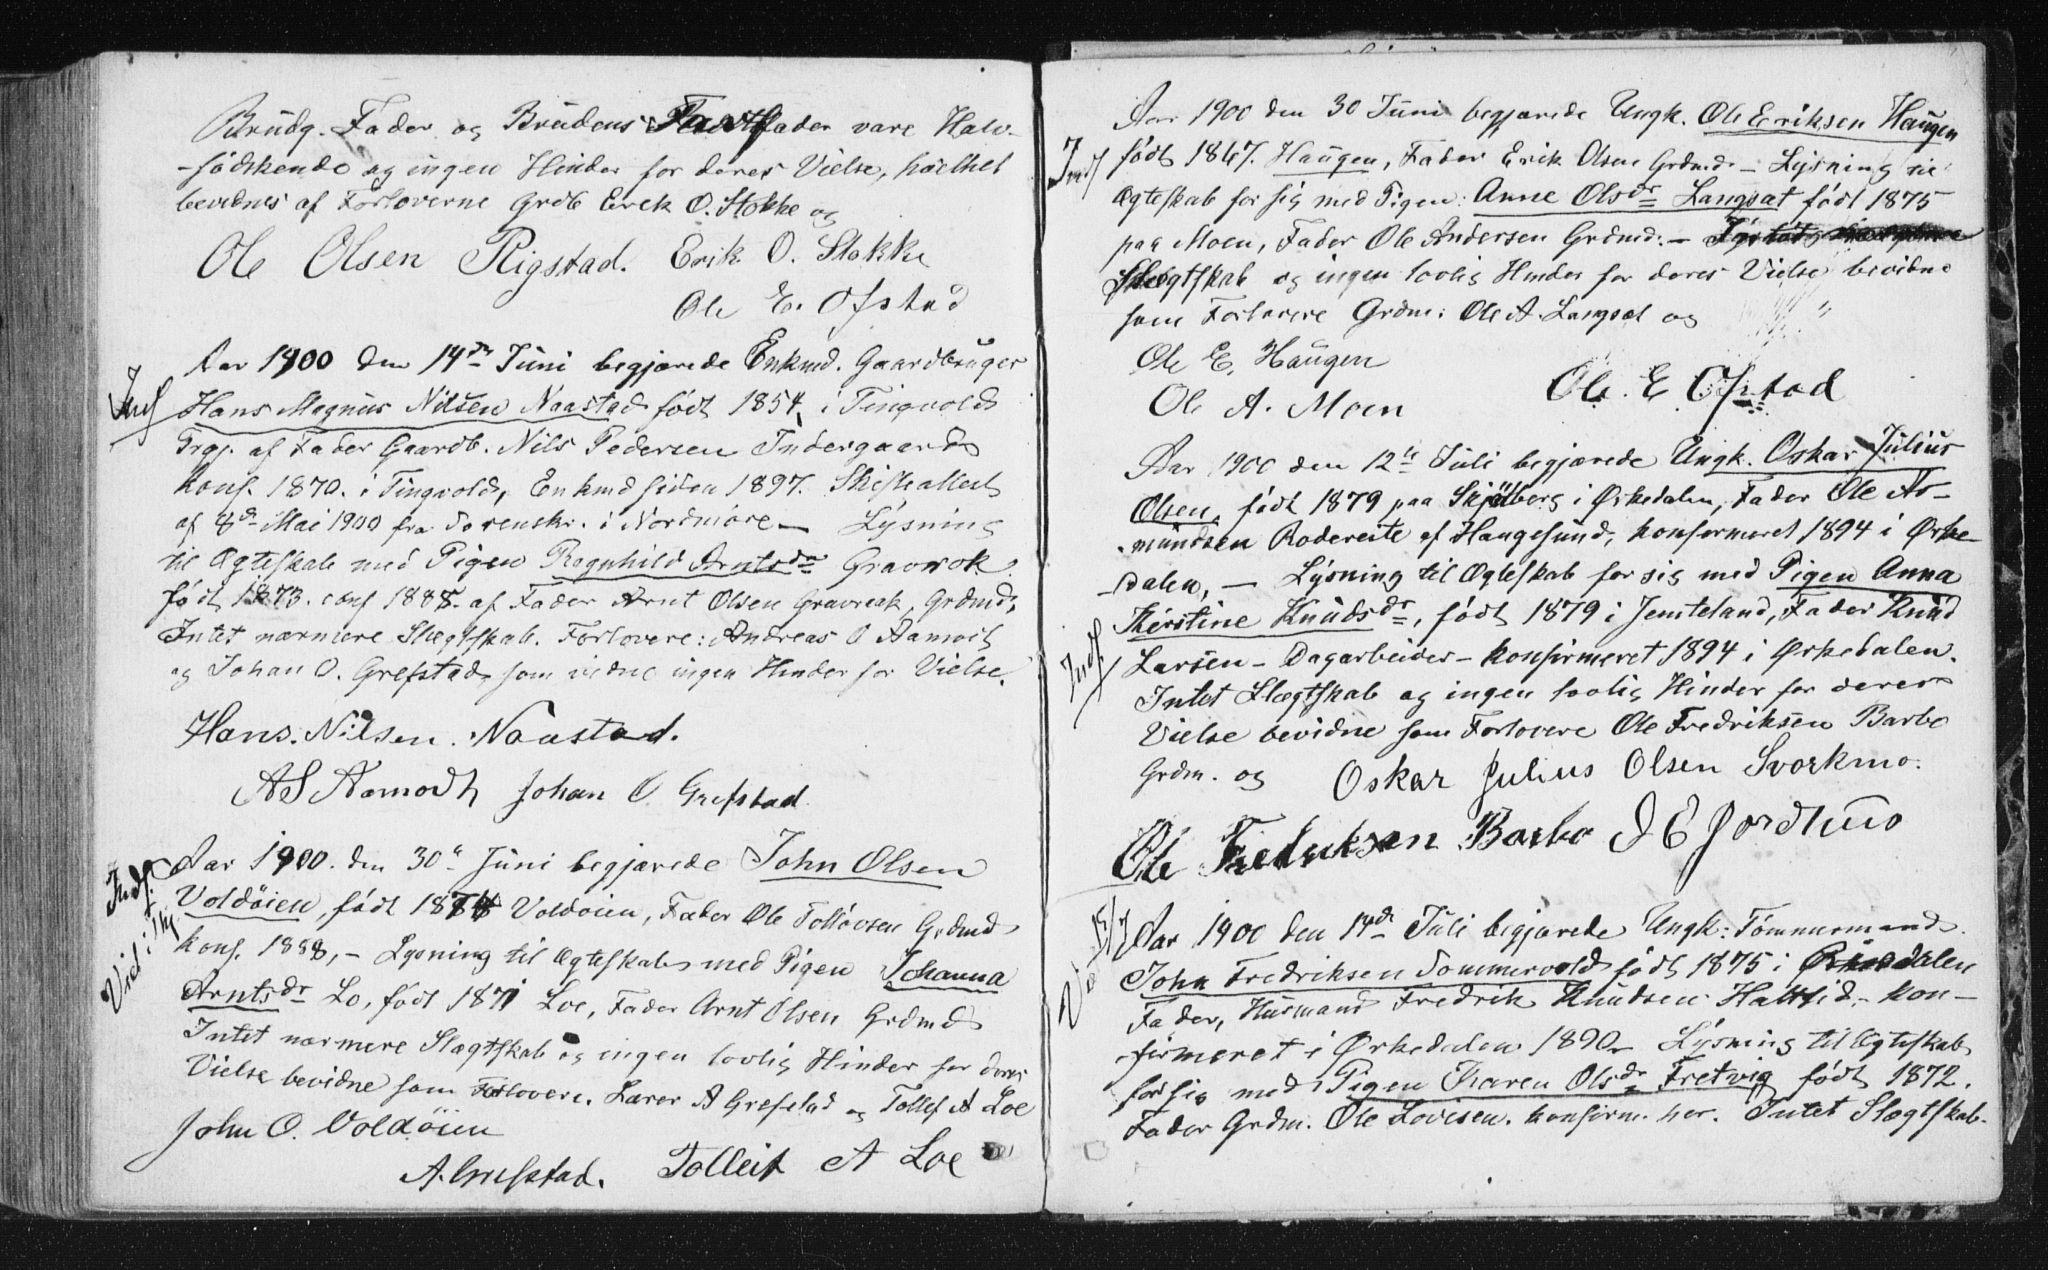 Brudg. Fader og Brudens Farfader vare Halv-
-sødskende og ingen Hinder for deres Vielse, hvilket
bevidnes af Forloverne Grdb Erik O. Stokke og
Ole Olsen Rigstad. Erik O. Stokke
Ole E. Ofstad
Indf
Aar 1900 den 14de Juni begjærede Enkmd. Gaardbruger
Hans Magnus Nilsen Naastad født 1854, i Tingvold
Prgj. af Fader Gaardb. Nils Pedersen Indergaard
konf. 1870. i Tingvold, Enkmd siden 1897. Skifteattest
af 8de Mai 1900 fra Sorenskr. i Nordmøre — Lysning
til Ægteskab med Pigen Ragnhild Arntsdr Gravrok
født 1873. conf 1888. af Fader Arnt Olsen Gravrok, Grdmd,
Intet nærmere Slægtskab. Forlovere: Andreas O Aamodt
og Johan O. Grefstad, som vidne ingen Hinder for Vielse.
Hans. Nilsen. Naastad.
AS Aamodt Johan O Grefstad
Indf.
Viet i
Aar 1900. den 30te Juni begjærede John Olsen
Voldøien, født 1874 Voldøien, Fader Ole Tollövsen Grdmd
konf. 1888, - Lysning til Ægteskab med Pigen Johanna
Arntsdr Lo, født 1871 Loe, Fader Arnt Olsen Grdmd
Intet nærmere Slægtskab og ingen lovlig Hinder for deres
Vielse bevidne som Forlovere. Lærer A Grefstad og Tollef A Loe
John O. Voldöien
A. Grefstad. Tolleif A Loe
Indf
Aar 1900 den 30 Juni begjærede Ungk. Ole Eriksen Haugen
født 1867. Haugen, Fader Erik Olsen Grdmd - Lysning til
Ægteskab for sig med Pigen: Anne Olsdr Langsæt født 1875
paa Moen, Fader Ole Andersen Grdmd. -
Slægtskab og ingen lovlig Hinder for deres Vielse bevidne
som Forlovere Grdm: Ole A. Langsæt og
Ole E. Haugen
Ole A. Moen Ole E Ofstad
Indf.
Aar 1900 den 12te Juli begjærede Ungk. Oskar Julius
Olsen, født 1879 paa Skjølberg i Ørkedalen, Fader Ole As-
mundsen Rodereite af Haugesund, konfirmeret 1894 i Ørke-
-dalen, — Lysning til Ægteskab for sig med Pigen Anna
Kirstine Knudsdr, født 1879 i Jemteland, Fader Knud
Larsen - Dagarbeider - konfirmeret 1894 i Ørkedalen.
Intet Slægtskab og ingen lovlig Hinder for deres
Vielse bevidne som Forlovere Ole Fredriksen Barbo
Grdm. og Oskar Julius Olsen Svorkmo.
Ole Fredriksen Barbo J E Jordhmo
V 15/7
Aar 1900 den 14de Juli begjærede Ungk: Tømmermand
John Fredriksen Sommervold født 1875 i Ørkedalen
Fader, Husmand Fredrik Knudsen Haltlid, - kon-
firmeret i Ørkedalen 1890 - Lysning til Ægteskab
for sig med Pigen Karen Olsdr Fretvig født 1872.
Fader Grdm. Ole Lovisen. konfirm. her. Intet Slægtskab.